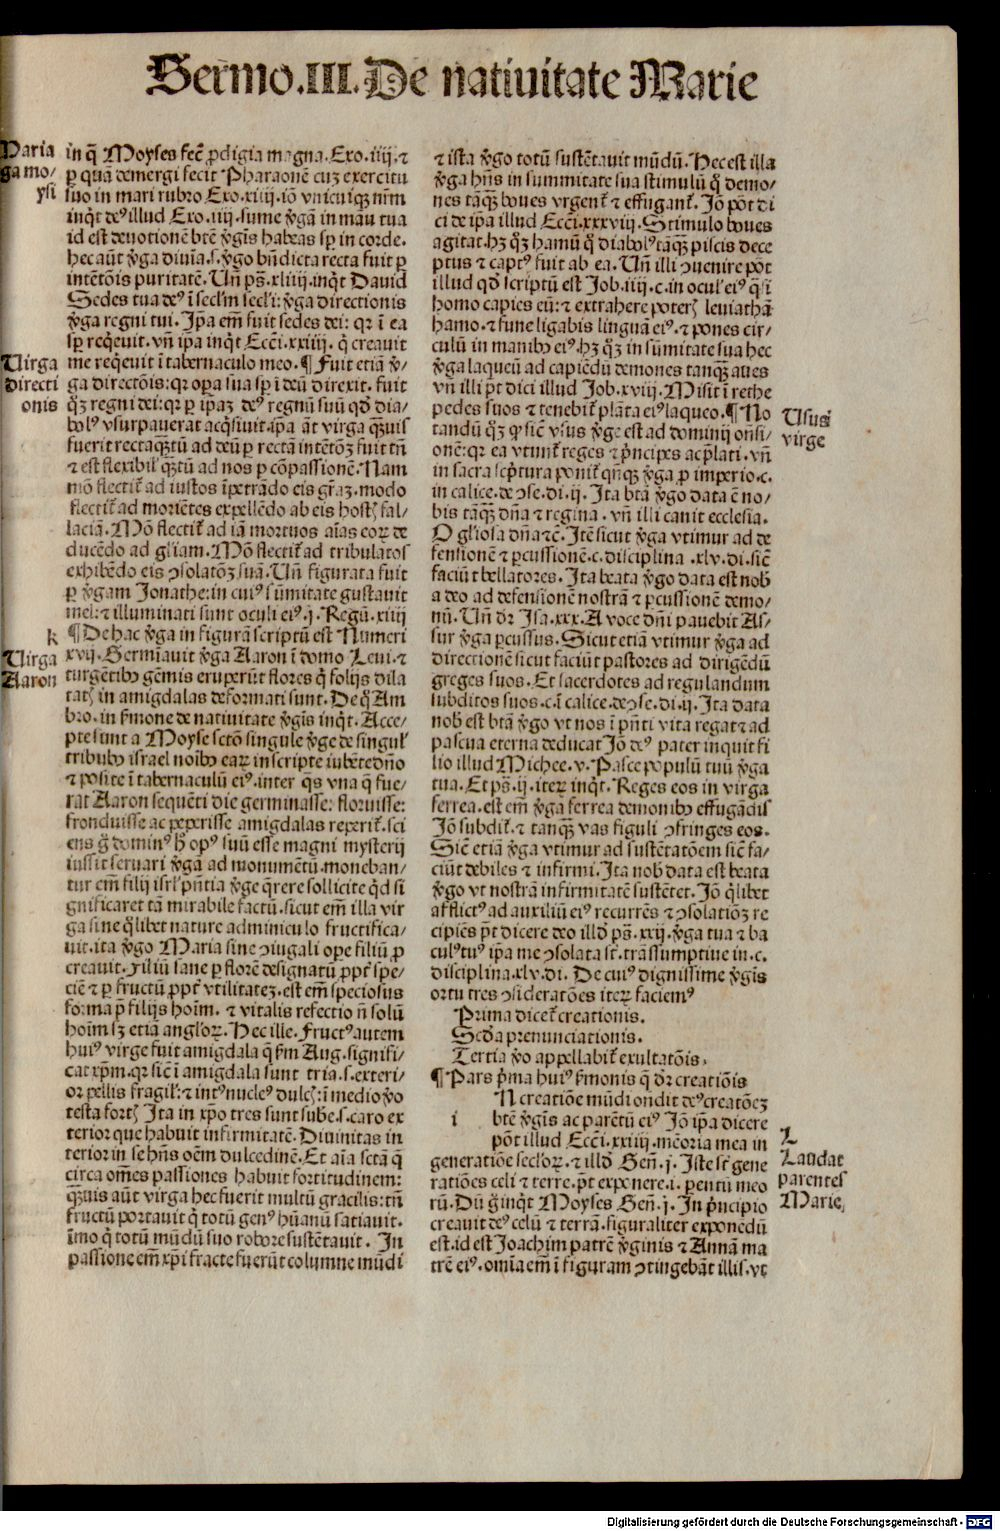 Sermo.III.De natiuitate Marie
Maria
ga mo/
ysi
in q̄ Moyses fec̄ ꝓdigia magna.Exo.iiij.⁊
ꝑ quā demergi fecit Pharaonē cuȝ exercitu
suo in mari rubro Exo.xiiij.iō vnicuiqꝫ nr̄m
inq̄t deꝰ illud Exo.iiij.sume v̄gā in manu tua
id est deuotionē btē v̄gīs habeas sp̄ in corde.
hec aūt v̄ga diuīa.s.v̄go bn̄dicta recta fuit ꝑ
intētōis puritatē. Un̄ ps̄.xliiij.inq̄t Dauid
Sedes tua deꝰ ī sec̄lm sec̄li: v̄ga directionis
v̄ga regni tui. Ip̄a em̄ fuit sedes dei: qr ī ea
sp̄ reqͥeuit. vn̄ ip̄a inq̄t Ecc̄i.xxiiij. q̄ creauit
me reqͥeuit ī tabernaculo meo. ¶ Fuit etiā v̄/
ga directōis: qr oꝑa sua sp̄ ī deū direxit. fuit
qͦꝫ regni dei: qr ꝑ ip̄aȝ deꝰ regnū suū qd̄ dia/
bolꝰ vsurpauerat acqͥsiuit
fuerit recta qꝫtū ad deū ꝑ rectā intētōȝ fuit tn̄
⁊ est flexibilꝭ qꝫtū ad nos ꝑ cōpassionē. Nam
mō flectit᷑ ad iustos īpetrādo eis gr̄aȝ. modo
flectit᷑ ad moriētes expellēdo ab eis hostꝭ fal/
laciā. Mō flectit᷑ ad iā mortuos aīas eoꝝ de
ducēdo ad gl̄iam. Mō flectit᷑ ad tribulatos
exhibēdo eis ꝯsolatōȝ suā. Un̄ figurata fuit
ꝑ v̄gam Jonathe: in cuiꝰ sūmitate gustauit
mel: ⁊ illuminati sunt oculi eiꝰ. j. Regū. xiiij
Uirga
directi
onis
k
Uirga
Aaron
¶ De hac v̄ga in figurā scriptū est Numeri
xvij. Germīauit v̄ga Aaron ī domo Leui. ⁊
turgētibꝰ gēmis eruperūt flores qͥ folijs dila
tatꝭ in amigdalas deformati sunt. De qͣ Am
bro. in s̄mone de natiuitate v̄gīs inq̄t. Acce/
pte sunt a Moyse sctōm singule v̄ge de singulꝭ
tribubꝰ israel noībꝰ eaꝝ inscripte iubēte dn̄o
⁊ posite ī tabernaculū eiꝰ. inter qͣs vna q̄ fue/
rat Aaron sequēti die germinasse: floruisse:
fronduisse ac peperisse amigdalas reperit᷑. sci
ens gͦ dominꝰ h̄ opꝰ suū esse magni mysterij
iussit seruari v̄gā ad monumētū. moneban/
tur em̄ filij isrl̄ pn̄tia v̄ge qͣrere sollicite qͥd si
gnificaret tā mirabile factū. sicut em̄ illa vir
ga sine qͣlibet nature adminiculo fructifica/
uit. ita v̄go Maria sine ꝯiugali ope filiū ꝓ
creauit. Filiū sane ꝑ florē designatū ꝓpt̄ spe/
ciē ⁊ ꝑ fructū ꝓpt̄ vtilitateȝ. est em̄ speciosus
forma p̄ filijs hoīm. ⁊ vitalis refectio n̄ solū
hoīm sꝫ etiā angl̄oꝝ. Hec ille. Fructꝰ autem
huiꝰ virge fuit amigdala q̄ s̄m Aug. signifi/
cat xp̄m. qr sic̄ ī amigdala sunt tria. s. exteri/
or pellis fragilꝭ: ⁊ intꝰ nucleꝰ dulcꝭ: ī medio v̄o
testa fortꝭ Ita in xp̄o tres sunt sube. s. caro ex
terior que habuit infirmitatē. Diuinitas in
terior in se hn̄s oēm dulcedinē. Et aīa sctā q̄
circa om̄es passiones habuit fortitudinem:
qꝫuis aūt virga hec fuerit multū gracilis: tn̄
fructū portauit qͥ totū genꝰ hūanū satiauit.
īmo qͥ totū mūdū suo robore sustētauit. In
passione em̄ xp̄i fracte fuerūt columne mūdi
⁊ ista v̄go totū sustētauit mūdū. Hec est illa
v̄ga hn̄s in summitate sua stimulū qͦ demo/
nes tāqꝫ boues vrgent᷑ ⁊ effugant᷑. Iō pōt di
ci de ip̄a illud Ecc̄i.xxxviij. Stimulo boues
agitat. hꝫ qͦꝫ hamū qͦ diabolꝰ tāqꝫ piscis dece
ptus ⁊ captꝰ fuit ab ea. Un̄ illi ꝯuenire pōt
illud qd̄ scriptū est Job.iiij.c. in oculꝭ eiꝰ qͣsi
homo capies eū: ⁊ extrahere poterꝭ leuiathā
hamo. ⁊ fune ligabis linguā eiꝰ. ⁊ pones cir/
culū in manibꝰ eiꝰ. hꝫ qͦꝫ in sūmitate sua hec
v̄ga laqueū ad capiēdū demones tanqꝫ aues
vn̄ illi pt̄ dici illud Job.xviij. Misit ī rethe
pedes suos ⁊ tenebit᷑ plāta eiꝰ laqueo. ¶ No
tandū qͦꝫ ꝙ sic̄ vsus v̄ge est ad dominij on̄si/
onē: qr ea vtunt᷑ reges ⁊ pͥncipes ac p̄lati. vn̄
in sacra scͥptura ponit᷑ qn̄qꝫ v̄ga ꝓ imperio. c.
in calice. de ꝯse. di. ij. Ita btā v̄go data ē no/
bis tāqꝫ dn̄a ⁊ regina. vn̄ illi canit ecclesia.
O gl̄iosa dn̄a ⁊c̄. Itē sicut v̄ga vtimur ad de
fensionē ⁊ ꝑcussionē. c. disciplina .xlv. di. sic̄
faciūt bellatores. Ita beata v̄go data est nob̄
a deo ad defensionē nostrā ⁊ ꝑcussionē demo/
nū. Un̄ dr̄ Isa. xxx. A voce dn̄i pauebit As/
sur v̄ga ꝑcussus. Sicut etiā vtimur v̄ga ad
directionē sicut faciūt pastores ad dirigēdū
greges suos. Et sacerdotes ad regulandum
subditos suos. c. ī calice. de ꝯse. di. ij. Ita data
nob̄ est btā v̄go vt nos ī pn̄ti vita regat ⁊ ad
pascua eterna deducat Iō deꝰ pater inquit fi
lio illud Michee. v. Pasce populū tuū v̄ga
tua. Et ps̄. ij. iteꝝ inq̄t. Reges eos in virga
ferrea. est em̄ v̄ga ferrea demonibꝰ effugādis
Iō subdit᷑. ⁊ tanqꝫ vas figuli ꝯfringes eos.
Sic̄ etiā v̄ga vtimur ad sustētatōem sic̄ fa/
ciūt debiles ⁊ infirmi. Ita nob̄ data est beata
v̄go vt nostrā infirmitatē sustētet. Iō qͥlibet
afflictꝰ ad auxiliū eiꝰ recurrēs ⁊ ꝯsolatiōȝ re
cipiēs pt̄ dicere deo illd̄ ps̄. xxij. v̄ga tua ⁊ ba
culꝰ tuꝰ ip̄a me ꝯsolata st̄. trāssumptiue in. c.
disciplina. xlv. di. De cuiꝰ dignissime v̄gīs
ortu tres ꝯsideratōes iteꝝ faciemꝰ
Prima dicet᷑ creationis.
Scd̄a prenunciationis.
Tertia v̄o appellabit᷑ exultatōis.
¶ Pars pͥma huiꝰ s̄monis q̄ dr̄ creatiōis
i
N creatiōe mūdi on̄dit deꝰ creatōeȝ
btē v̄gīs ac parētū eiꝰ Iō ip̄a dicere
pōt illud Ecc̄i.xxiiij. mēoria mea in
generatiōe secl̄oꝝ. ⁊ illd̄ Gen̄. j. Iste st̄ gene
ratiōes celi ⁊ terre. pt̄ exponere. i. parentū meo
rū. Dū gͦ inq̄t Moyses Gen̄. j. In pͥncipio
creauit deꝰ celū ⁊ terrā. figuraliter exponēdū
est. id est Joachim patrē v̄ginis ⁊ Annā ma
trē eiꝰ. omīa em̄ ī figuram ꝯtingebāt illis. vt
Usus
virge
L
Laudat
parentes
Marie.
Digitalisierung gefördert durch die Deutsche Forschungsgemeinschaft - DFG